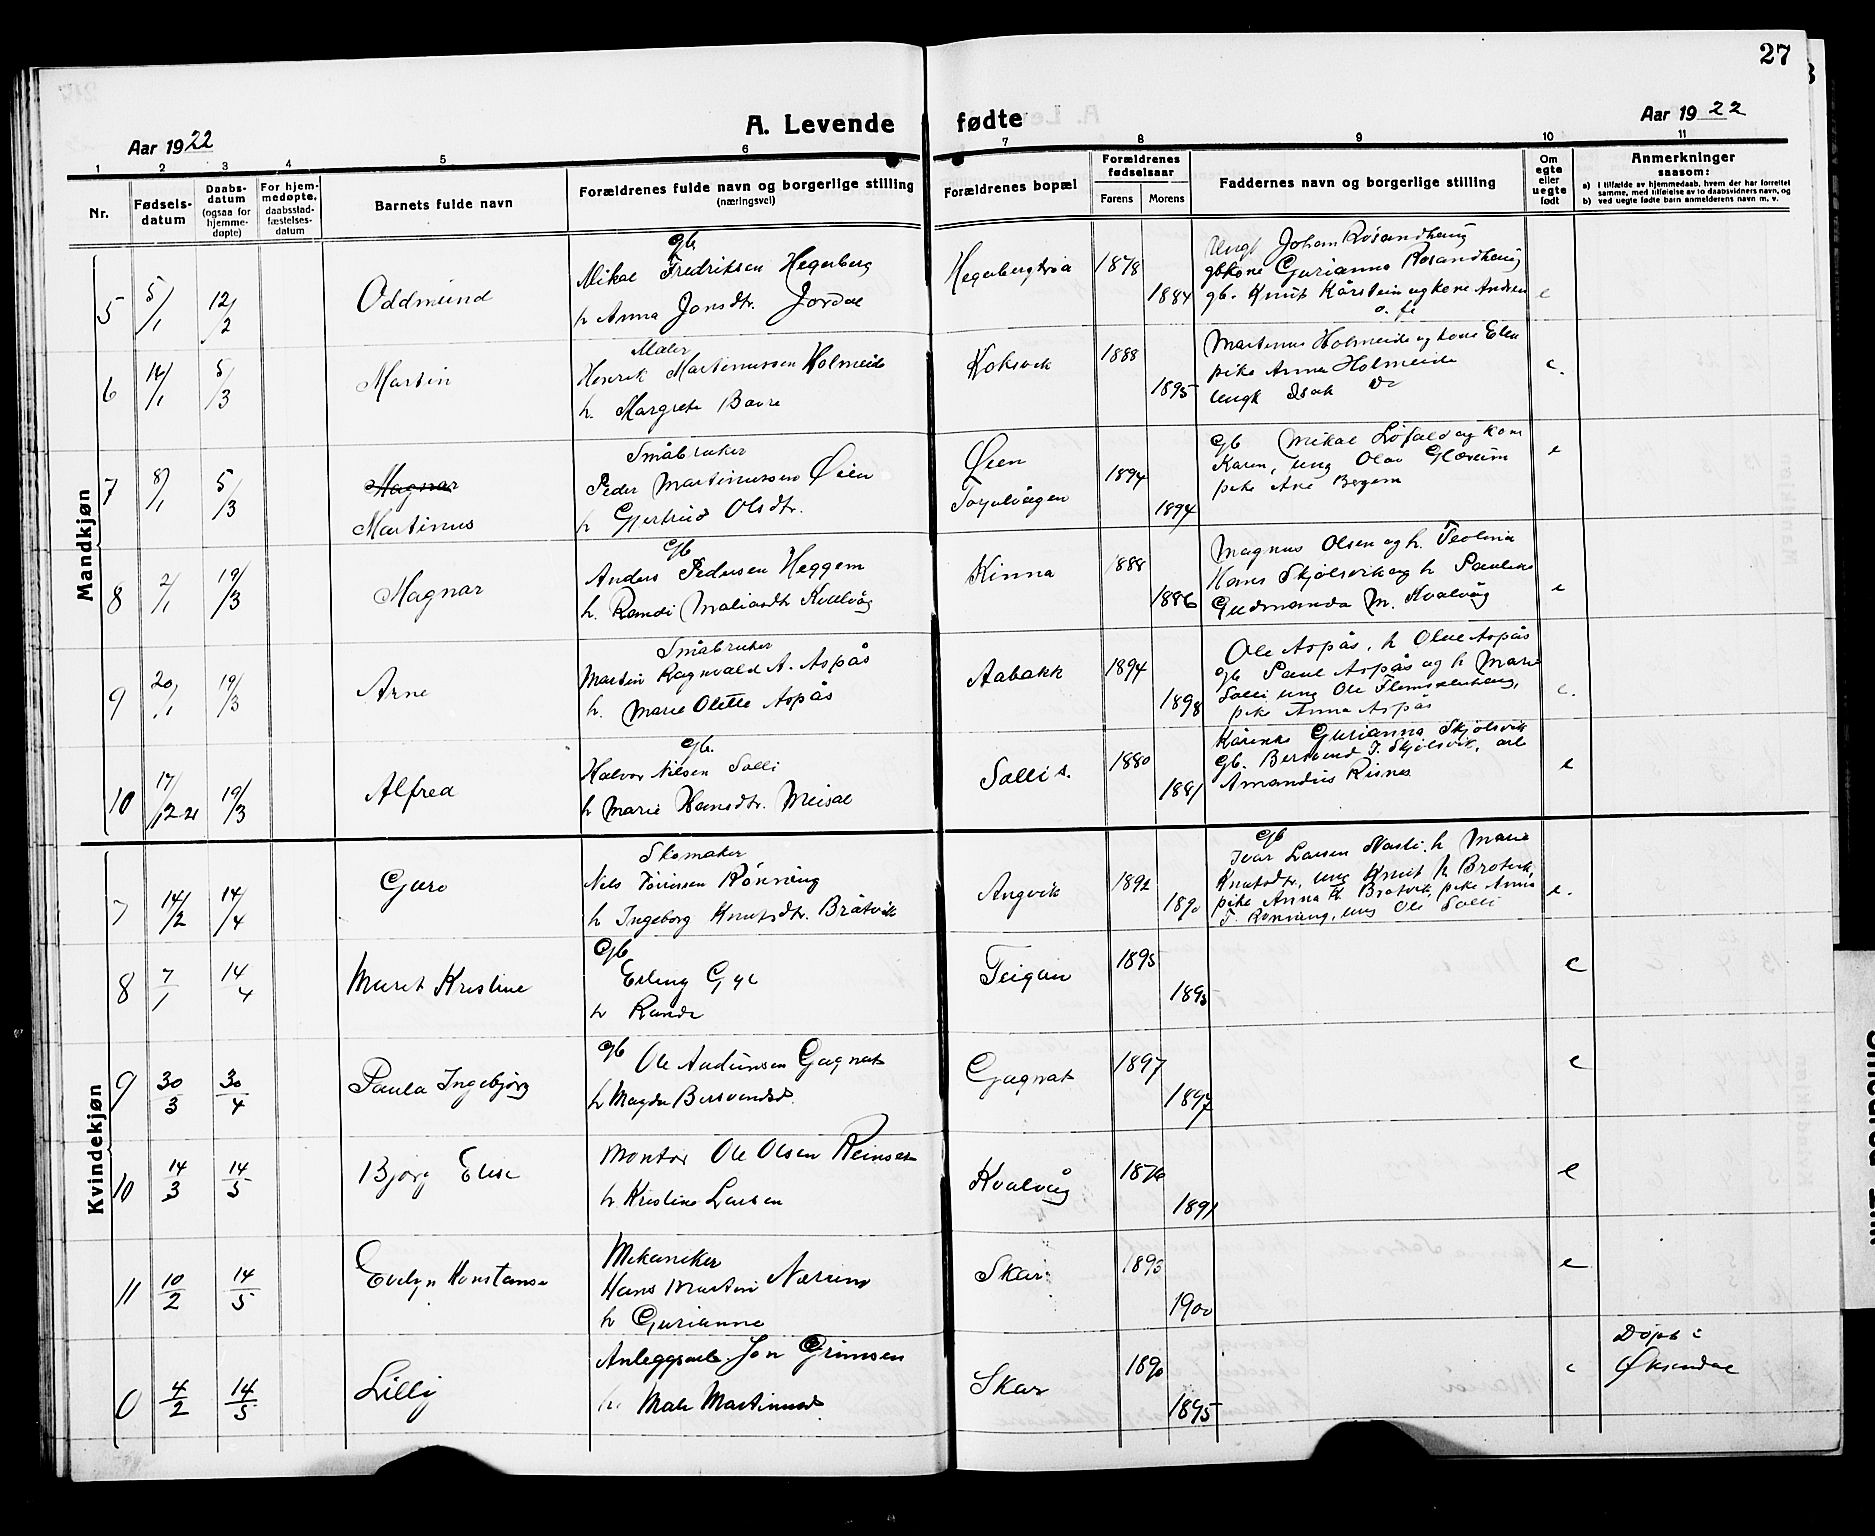 27
A. Levende fødte
Aar 1922
Aar 1922
1 2 3 4 5 6 7 8 9 10 11
Nr.
Fødsels-
datum
Daabs-
datum
(ogsaa for
hjemme-
døpte)
For hjem-
medøpte,
daabsstad-
fæstelses-
datum
Barnets fulde navn
Forældrenes fulde navn og borgerlige stilling
(næringsvei)
Forældrenes bopæl
Forældrenes
fødselsaar
Farens Morens
Faddernes navn og borgerlige stilling
Om
egte
eller
uegte
født
Anmerkninger
saasom:
a) I tilfælde av hjemmedaab, hvem der har forrettet
samme, med tilføielse av to daabsvidners navn, og
b) ved uegte fødte barn anmelderens navn m. v.
Mandkjøn
5 5/1 12/2 Oddmund
gb
Mikal Fredriksen Hegerberg
h Anna Jonsdtr. Jordal
Hegerbergtrøa 1878 1884
Ungk Johan Rosandhaug
gbkone Gurianna Rosandhaug
gb. Knut Kårstein og kone Andrea
e
6 14/1 5/3 Martin
Maler
Henrik Martinussen Holmeide
h. Margrete Bavre
Koksvik 1888 1895
Martinus Holmeide og kone Elen
pike Anna Holmeide
Ungk Isak Do
e.
7 8/1 5/3 Magnar
Martinus
Småbruker
Peder Martinussen Øien
h Gjertrud Olsdtr.
Øien
Torjulvågen 1894 1894
gb Mikal Løfald og kone
Karen, ung Olav Glærum
pike Ane Bergem
e
8 2/1 19/3 Magnar
gb
Anders Pedersen Heggem
h. Randi Maliasdtr Kvalvåg
Kinna 1888 1886
Magnus Olsen og h. Teolina
Hans Skjølsvik og h Pauline
Gudmunda M. Kvalvåg
e
9 20/1 19/3 Arne
Småbruker
Martin Ragnvald A. Aspås
h. Marie Olette Aspås
Aabakk 1894 1898
Ole Aspås, h Olue Aspås
gb Paul Aspås og h Marie
Solli ung Ole
pike Anna Aspås
e.
10 17/12-21 19/3 Alfred
gb.
Halvor Nilsen Solli
h Marie Hansdtr. Meisal
Solli s. 1880 1881
Kårenke Gurianna Skjølsvik
gb. Bersvend J. Skjølsvik, arb
Amandus Risnes
e
Kvindekjøn
7 14/2 14/4 Guro
Skomaker
Nils Tørrissen Rønning
h Ingeborg Knutsdtr. Bråtvik
Angvik 1892 1890
gb
Ivar Larsen Nasti. h Marie
Knutsdtr, ung Knut K Brotvik,
pike Anna K Brotvik, pike Anna
T. Rønning, ung Ole Solli
e.
8 7/1 14/4 Marit Kristine
gb
Erling Gyl
h Randi
Teigan 1895 1895
e
9 30/3 30/4 Paula Ingebjørg
gb Ole Audunsen Gagnat
h Magda Bersvendsd.
Gagnat 1897 1897
e
10 14/3 14/5 Bjørg Elise
Montør Ole Olsen Reinset
h. Kristine Larsen
Kvalvåg 1876 1891
e
11 10/2 14/5 Evelyn Konstanse
Mekaniker
Hans Martin Nærum
h Gurianne
Skar 1893 1900
e
0 4/2 14/5 Lilly
Anleggsarb. Jon Grimsen
h. Mali Martinusd
Skar 1890 1895
e
Døpt i
Øksendal